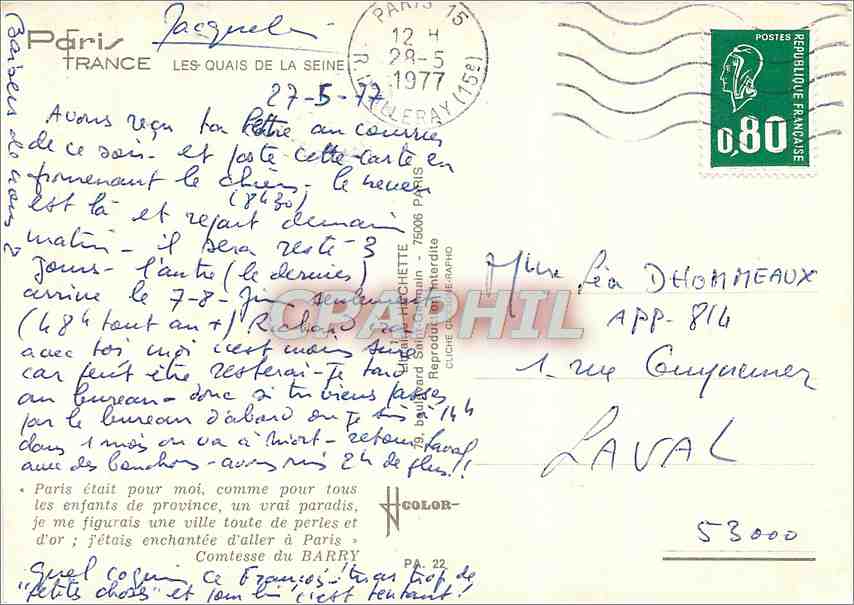 Jacqueline
Paris
FRANCE LES QUAIS DE LA SEINE
PARIS 15
12 H
28-5
1977
R. D'ALLERAY (15e)
POSTES
REPUBLIQUE FRANÇAISE
0,80
Baisers de nous 2
27-5-77
Avons reçu ta lettre au courrier
de ce soir - et poste cette carte en
promenant le chien - le neveu
(8h30)
est là et repart demain
matin - il sera resté 3
jours - l'autre (le dernier)
arrive le 7-8 Juin seulement
(48h tout au +) Richard ira
avec toi moi c'est moins sûre
car peut être resterai-je tard
au bureau - donc si tu viens passes
par le bureau d'abord où je suis à 14h
dans 1 mois on va à Niort - retour Laval
avec des bouchons - avons mis 2h de plus!!
« Paris était pour moi, comme pour tous
les enfants de province, un vrai paradis,
je me figurais une ville toute de perles et
d'or ; j'étais enchantée d'aller à Paris »
Comtesse du BARRY
Quel coquin ce François - tu as trop de
"petites choses" et pour lui c'est tentant!
Librairie HACHETTE
79, boulevard Saint-Germain - 75006 PARIS
Reproduction interdite
COLOR
PA. 22
CPAPHIL
Mme Léa DHOMMEAUX
APP - 814
1 - rue Guynemer
LAVAL
53000